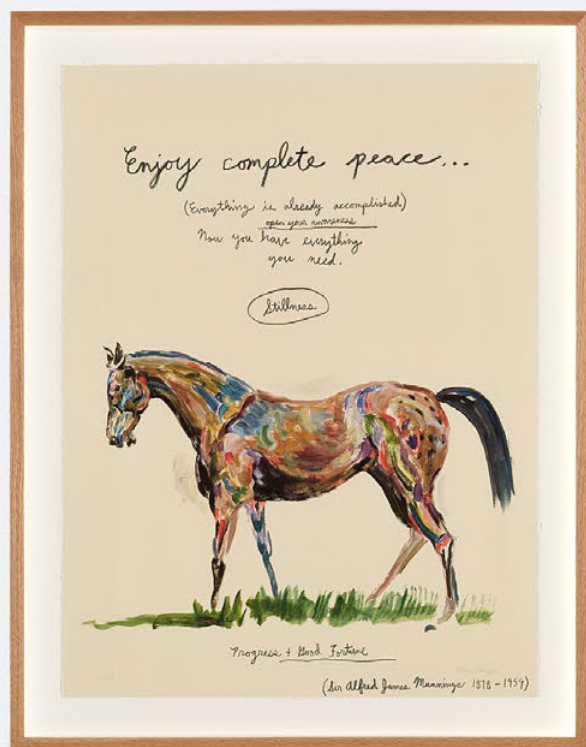 Enjoy complete peace...
(Everything is already accomplished)
open your awareness
Now you have everything
you need.
Stillness
Progress + Good Fortune
(Sir Alfred James Munnings 1878-1959)